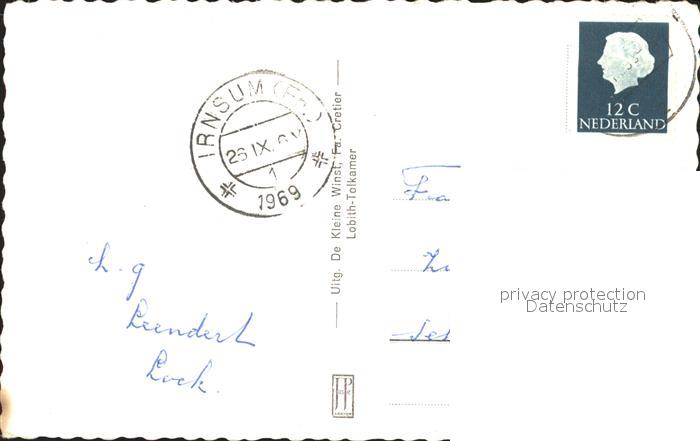 12 C
NEDERLAND
IRNSUM (Fr.)
26 IX.
1
1969
Uitg. De Kleine Winst, Fa. Cretier
Lobith-Tolkamer
h. g
Leendert
Lock.
Fra
privacy protection
Datenschutz